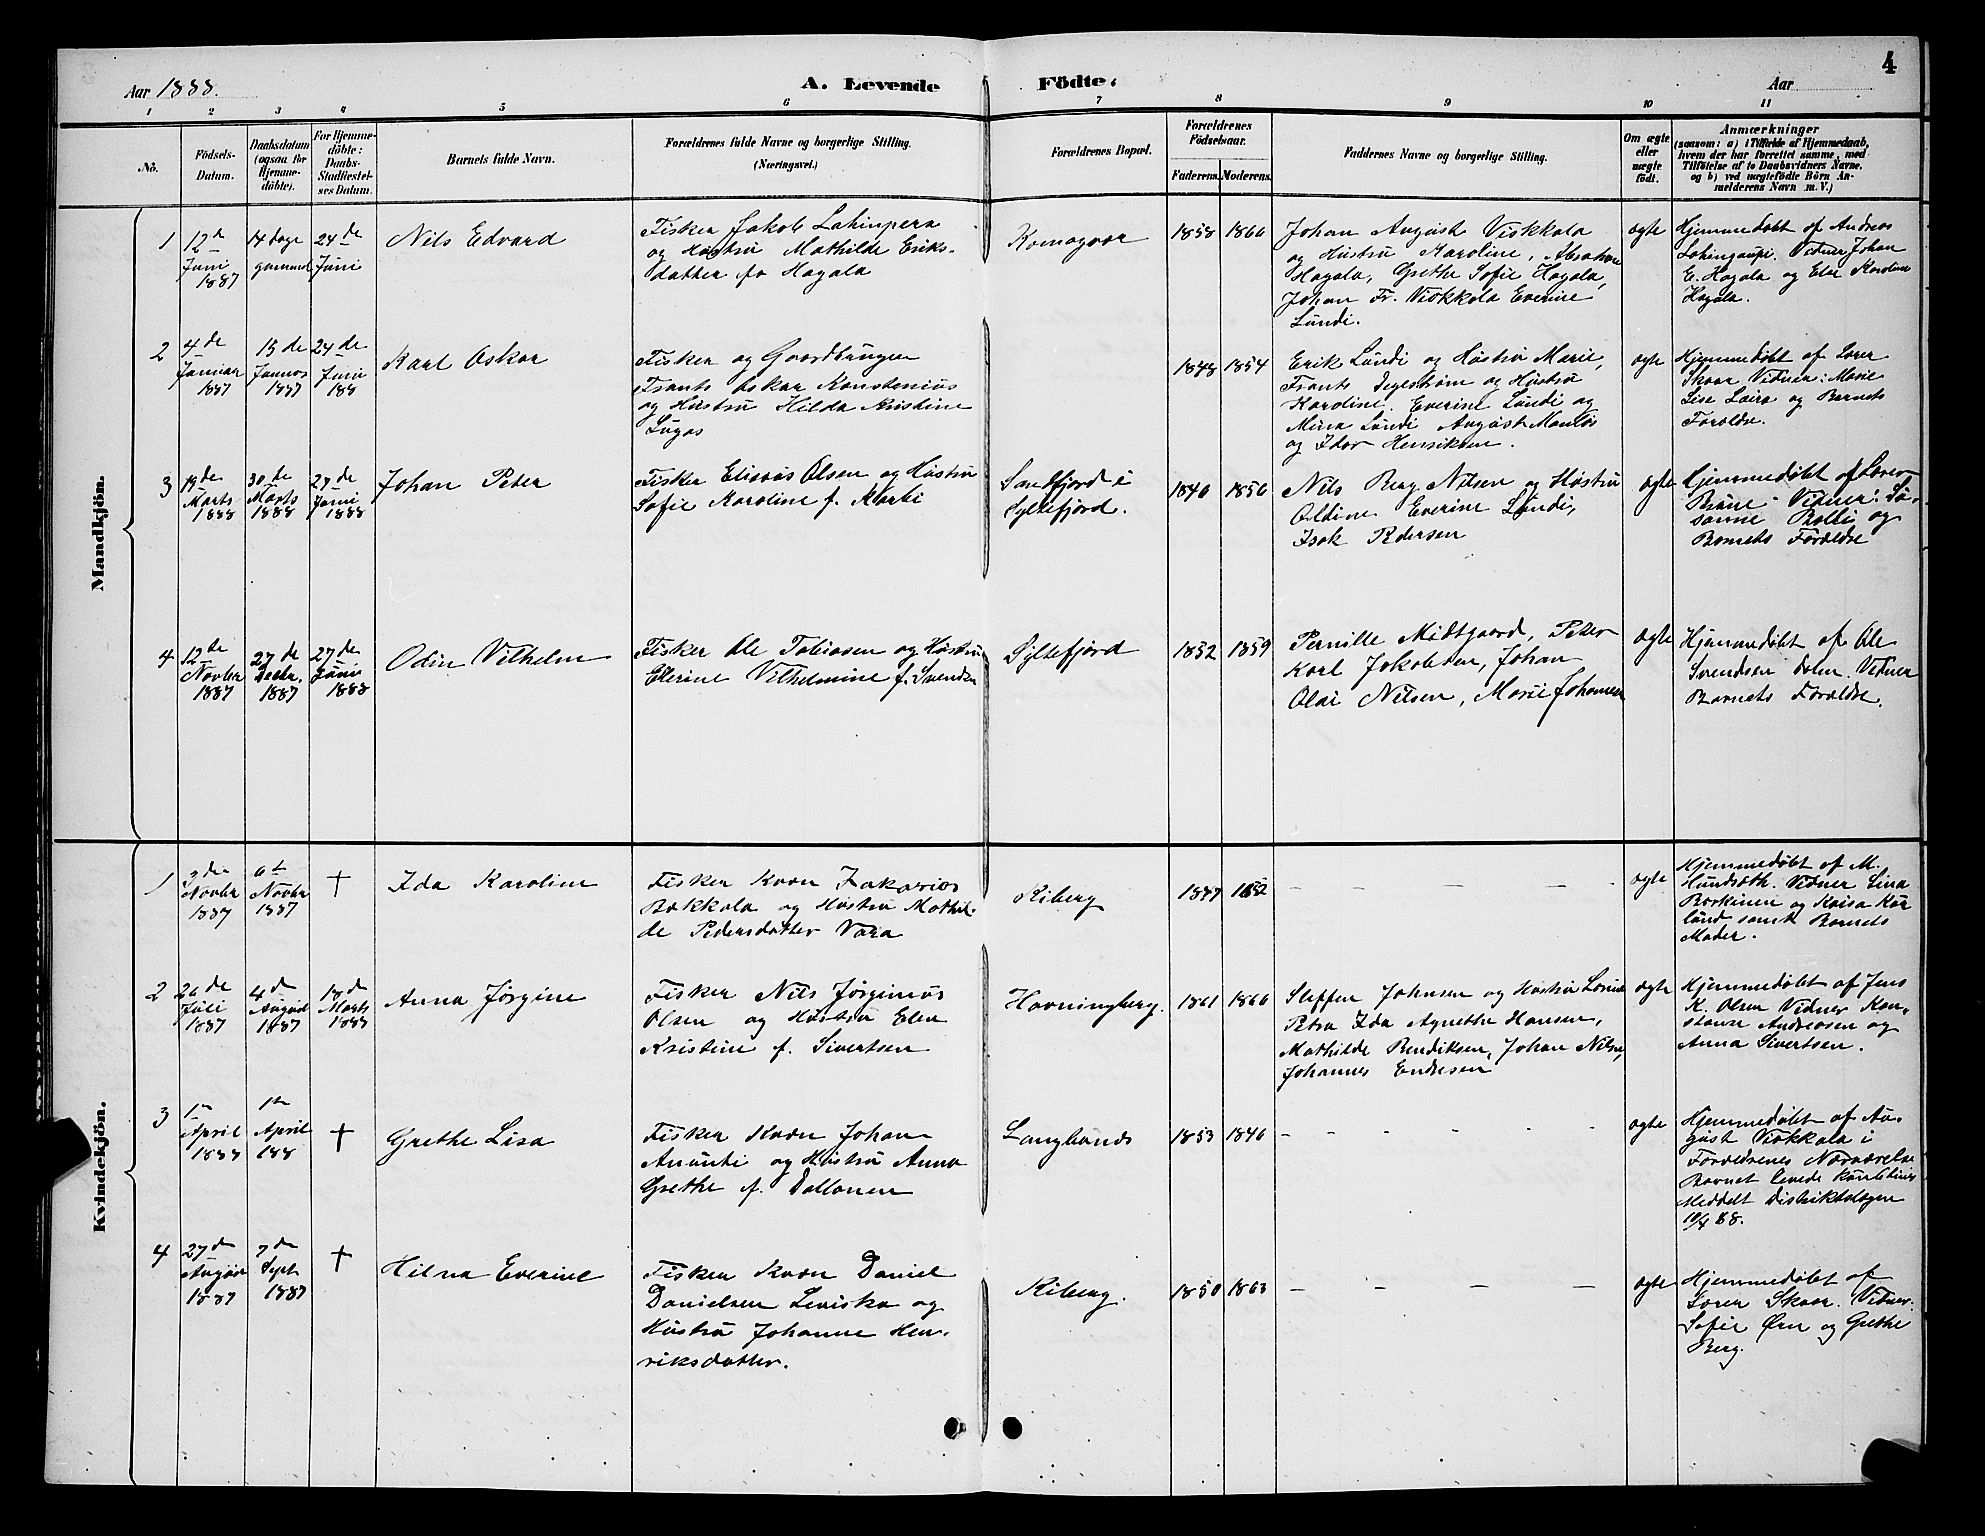 4
Aar 1888.
A. Levende Födte.
Aar
1 2 3 4 5 6 7 8 9 10 11
No.
Födsels-
Datum.
Daabsdatum
(ogsaa for
Hjemme-
döbte).
For Hjemme-
döbte:
Daabs-
Stadfæstel-
ses Datum.
Barnets fulde Navn.
Forældrenes fulde Navne og borgerlige Stilling.
(Næringsvei.)
Forældrenes Bopæl.
Forældrenes
Födselsaar.
Faderens. Moderens.
Faddernes Navne og borgerlige Stilling.
Om ægte
eller
uægte
födt.
Anmærkninger
(saasom: a) i Tilfælde af Hjemmedaab,
hvem der har forrettet samme, med
Tilföielse af to Daabsvidners Navne.
og b) ved uægtefödte Börn An-
melderens Navn m. V.)
Mandkjön.
1
12de
Juni
1887
14 dage
gammel
24de
Juni
Nils Edvard
Fisker Jakob Lahinpera
og Hustru Mathilde Eriks-
datter fø Hagala
Komagvær
1858 1860
Johan August Viskkala
og Hustru Karoline, Abraham
Hagala, Grethe Sofie Hagala,
Johan Fr. Viskkala Everine
Lundi.
ægte
Hjemmedøbt af Andreas
Vidner Johan
E. Hagala og Else Karoline
Hagala.
2
4de
Januar
1887
15de
Januar
1887
24de
Juni
188
Karl Oskar
Fisker og Gaardbruger
Frants Oskar Konstenius
og Hustru Hilda Kristine
Lugas
1848 1854
Erik Lundi og Hustru Marie,
Frants Segerstrøm og Hustru
Karoline. Everine Lundi og
Mina Lundi August Mantos
og Idor Henriksen.
ægte
Hjemmedøbt af Lærer
Skaar Vidner: Marie
Lise Laira og Barnets
Foræeldre.
3
19de
Marts
1888
30de
Marts
1888
27de
Juni
1888
Johan Peter
Fisker Elisæus Olsen og Hustru
Sofie Karoline f. Marbi
Sandfjord i
Syltefjord.
1840 1850
Nils Berg Nilsen og Hustru
Oldine Everine Lundi,
Isak Pedersen
ægte
Hjemmedøbt af Lærer
Brune. Vidner: Su-
sanne Balli og
Barnets Forældre
4
12te
Novbr
1887
27de
Decbr.
1887
27de
Juni
1888
Odin Vilhelm
Fisker Ole Tobiasen og Hustru
Elerine Vilhelmine f. Svendsen
Syltefjord
1852 1859
Pernille Midtgaard, Peter
Karl Jakobsen, Johan
Olai Nilsen, Marie Johansen
ægte
Hjemmedøbt af Ole
Svendsen Dalen. Vidner
Barnets Forældre.
Kvindekjön.
1
3die
Novbr
1887
6te
Novbr
1887
†
Ida Karoline
Fisker Kvæn Zakarias
Bækkala og Hustru Mathil-
de Pedersdatter Vara
Kiberg
1847 1852
– – – –
ægte
Hjemmedøbt af M.
Hundsæth. Vidner Lina
Barkinen og Kaisa Kur
lund samt Barnets
Moder.
2
26de
Juli
1887
4de
August
1887
18de
Marts
1888
Anna Jørgine
Fisker Nils Jørginus
Olsen og Hustru Elen
Kristine f. Sivertsen
Havningberg.
1861 1860
Steffen Johnsen og Hustru Lovise
Petra Ida Agnethe Hansen,
Mathilde Bendiksen, Johan Nilsen,
Johannes Endresen
ægte
Hjemmedøbt af Jens
K. Olsen Vidner Kon-
stanse Andreasen og
Anna Sivertsen.
3
1ste
April
1888
1ste
April
188
†
Grethe Lisa
Fisker Kvæn Johan
Anunti og Hustru Anna
Grethe f. Dallanen
Langbunds
1853 1846
– – – – –
ægte
Hjemmedøbt af Au-
gust Viskkala i
Forældrenes Nærværelse
Barnet levede
Meddelt Distriktslægen
10/4 88.
4
27de
August
1887
7de
Sept.
1887
†
Hilma Everine
Fisker Kvæn Daniel
Danielsen Leviska og
Hustru Johanne Hen-
riksdatter.
Kiberg.
1850 1863
– – – –
ægte
Hjemmedøbt af
Lærer Skaar. Vidner
Sofie Ørn og Grethe
Berg.